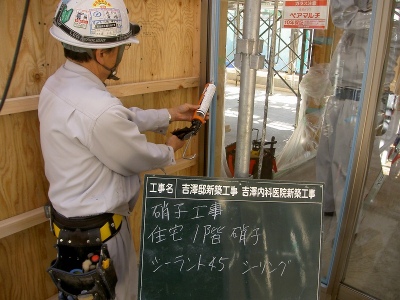 ペアマルチ
工事名 吉澤邸新築工事 吉澤内科医院新築工事
硝子工事
住宅 1階 硝子
シーラント45 シーリング